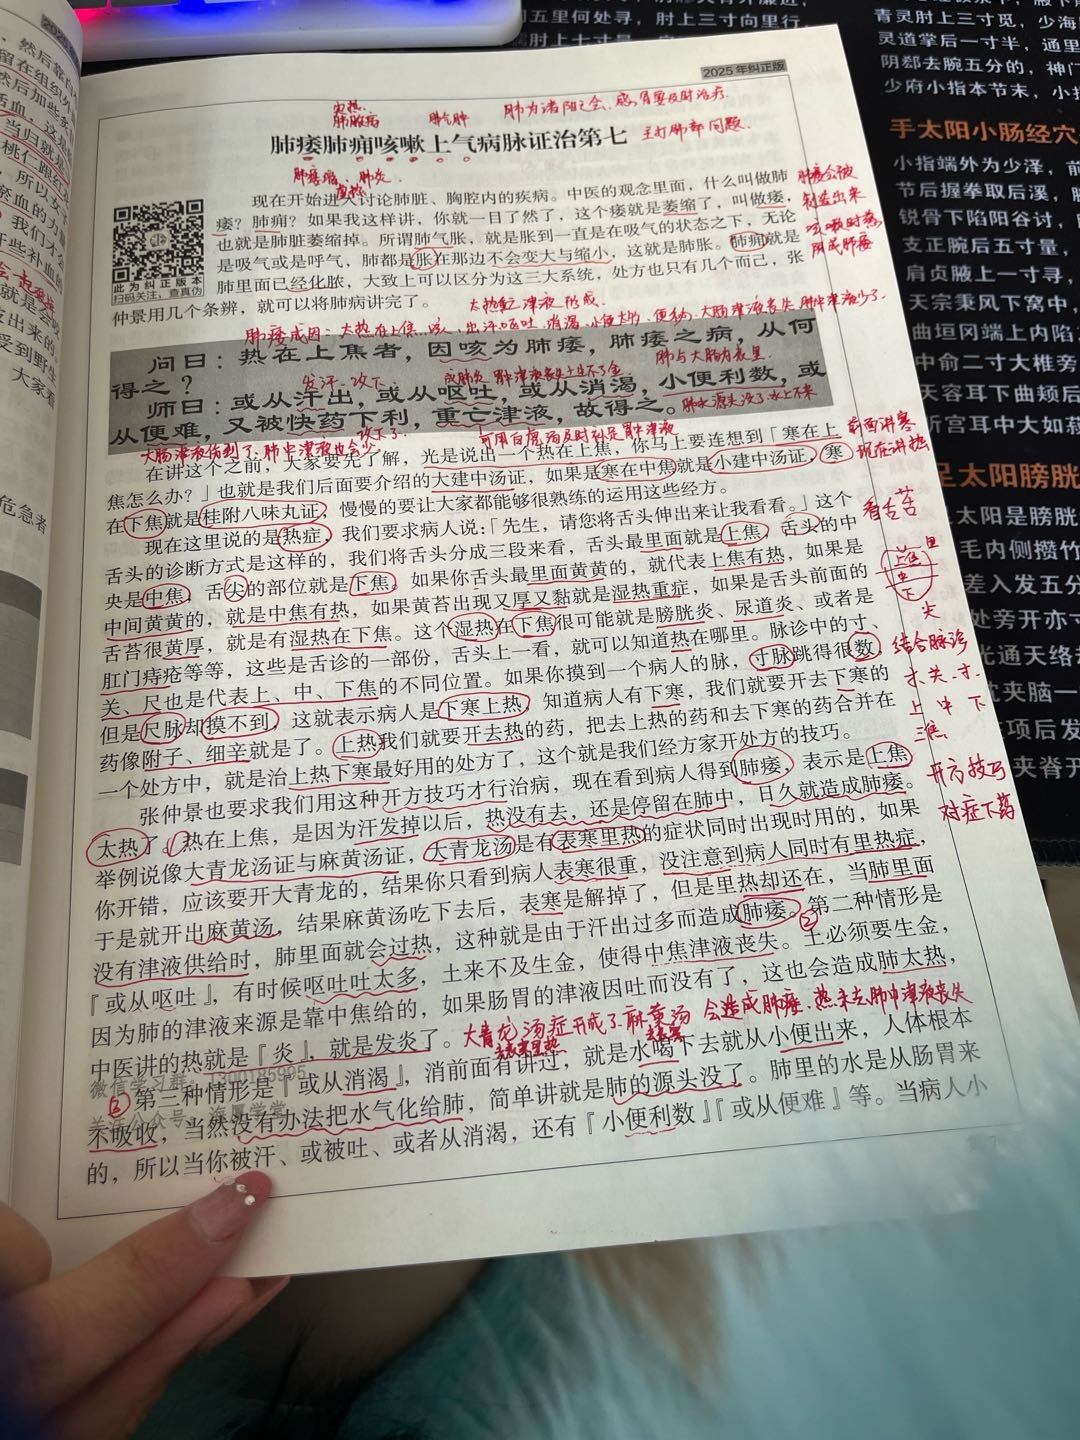 2025年纠正版
实热
肺脓疡
肺气肿
肺为诸阳之会、感冒要及时治疗.
肺痿肺痈咳嗽上气病脉证治第七
主打肺部问题.
肺痿缩、肺炎.
虚热
现在开始进入讨论肺脏、胸腔内的疾病。中医的观念里面，什么叫做肺
痿？肺痈？如果我这样讲，你就一目了然了，这个痿就是萎缩了，叫做痿，
也就是肺脏萎缩掉。所谓肺气胀，就是胀到一直是在吸气的状态之下，无论
是吸气或是呼气，肺都是胀在那边不会变大与缩小，这就是肺胀。肺痈就是
肺里面已经化脓，大致上可以区分为这三大系统，处方也只有几个而已，张
仲景用几个条辨，就可以将肺病讲完了。
此为纠正版本
扫码关注，查真伪
肺痿会被
制造出来
咳嗽时
肺与大肠为表里
问曰：热在上焦者，因咳为肺痿，肺痿之病，从何
得之？
发汗、攻下
师曰：或从汗出，或从呕吐，或从消渴，小便利数，或
从便难，又被快药下利，重亡津液，故得之。
攻下了.
肺水源头没了水上不来
大肠津液伤到了.肺中津液也会少
可用白虎汤及时补足胃津液
前面讲寒
现在讲热
在讲这个之前，大家要先了解，光是说出一个热在上焦，你马上要连想到「寒在上
焦怎么办？」也就是我们后面要介绍的大建中汤证，如果是寒在中焦就是小建中汤证，寒
在下焦就是桂附八味丸证，慢慢的要让大家都能够很熟练的运用这些经方。
现在这里说的是热症，我们要求病人说：「先生，请您将舌头伸出来让我看看。」这个
舌头的诊断方式是这样的，我们将舌头分成三段来看，舌头最里面就是上焦，舌头的中
央是中焦，舌尖的部位就是下焦。如果你舌头最里面黄黄的，就代表上焦有热，如果是
中间黄黄的，就是中焦有热，如果黄苔出现又厚又黏就是湿热重症，如果是舌头前面的
舌苔很黄厚，就是有湿热在下焦。这个湿热在下焦很可能就是膀胱炎、尿道炎、或者是
肛门痔疮等等，这些是舌诊的一部份，舌头上一看，就可以知道热在哪里。脉诊中的寸、
关、尺也是代表上、中、下焦的不同位置。如果你摸到一个病人的脉，寸脉跳得很数，
但是尺脉却摸不到，这就表示病人是下寒上热，知道病人有下寒，我们就要开去下寒的
药像附子、细辛就是了。上热我们就要开去热的药，把去上热的药和去下寒的药合并在
一个处方中，就是治上热下寒最好用的处方了，这个就是我们经方家开处方的技巧。
看舌苔
里
上焦
中
下
尖
结合脉诊
寸.关.寸.
上 中 下
三焦
开方技巧
对症下药
张仲景也要求我们用这种开方技巧才行治病，现在看到病人得到肺痿，表示是上焦
太热了。热在上焦，是因为汗发掉以后，热没有去，还是停留在肺中，日久就造成肺痿。
举例说像大青龙汤证与麻黄汤证，大青龙汤是有表寒里热的症状同时出现时用的，如果
你开错，应该要开大青龙的，结果你只看到病人表寒很重，没注意到病人同时有里热症，
于是就开出麻黄汤，结果麻黄汤吃下去后，表寒是解掉了，但是里热却还在，当肺里面
没有津液供给时，肺里面就会过热，这种就是由于汗出过多而造成肺痿。第二种情形是
②
『或从呕吐』，有时候呕吐吐太多，土来不及生金，使得中焦津液丧失。土必须要生金，
因为肺的津液来源是靠中焦给的，如果肠胃的津液因吐而没有了，这也会造成肺太热，
中医讲的热就是『炎』，就是发炎了。
大青龙汤症开成了麻黄汤 会造成肺痿.热未去肺中津液丧失
去表寒里热
去表寒
③
第三种情形是『或从消渴』，消前面有讲过，就是水喝下去就从小便出来，人体根本
不吸收，当然没有办法把水气化给肺，简单讲就是肺的源头没了。肺里的水是从肠胃来
的，所以当你被汗、或被吐、或者从消渴，还有『小便利数』『或从便难』等。当病人小
手太阳小肠经穴
小指端外为少泽，前
节后握拳取后溪，腕
锐骨下陷阳谷讨，
支正腕后五寸量，
肩贞腋上一寸寻，
天宗秉风下窝中，
曲垣冈端上内陷
中俞二寸大椎旁
天容耳下曲颊后
听宫耳中大如菽
足太阳膀胱